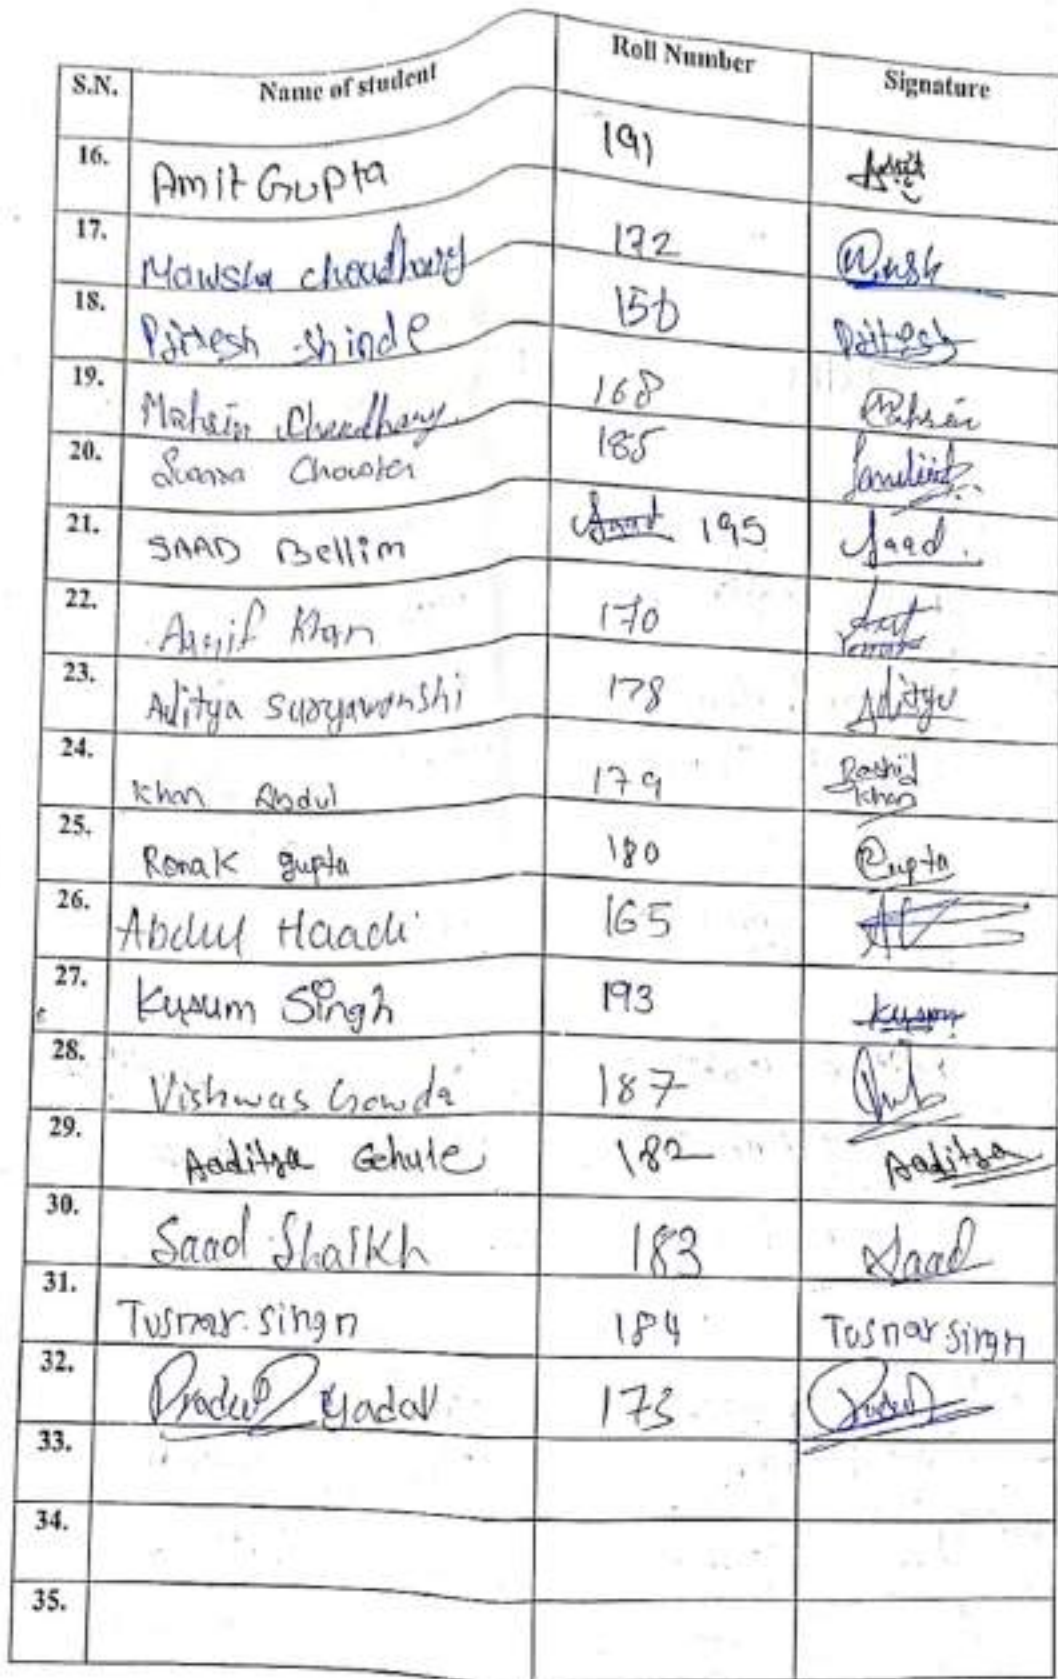 S.N. Name of student Roll Number Signature
16. Amit Gupta 191
17. Mawsha choudhary 172
18. Pritesh shinde 156 Pritesh
19. Mahsin Choudhary. 168 Mahsin
20. 185
21. SAAD Bellim Saad 195 Saad.
22. Khan 170
23. Aditya Suryawanshi 178 Aditya
24. Khan Abdul 179 Rashid Khan
25. Ronak gupta 180 Gupta
26. Abdul Haadi 165
27. Kusum Singh 193 Kusum
28. Vishwas Gowda 187
29. Aaditya Gehule 182 Aaditya
30. Saad Shaikh 183 Saad
31. Tusnar singn 184 Tusnar singn
32. Yadav 173
33.
34.
35.